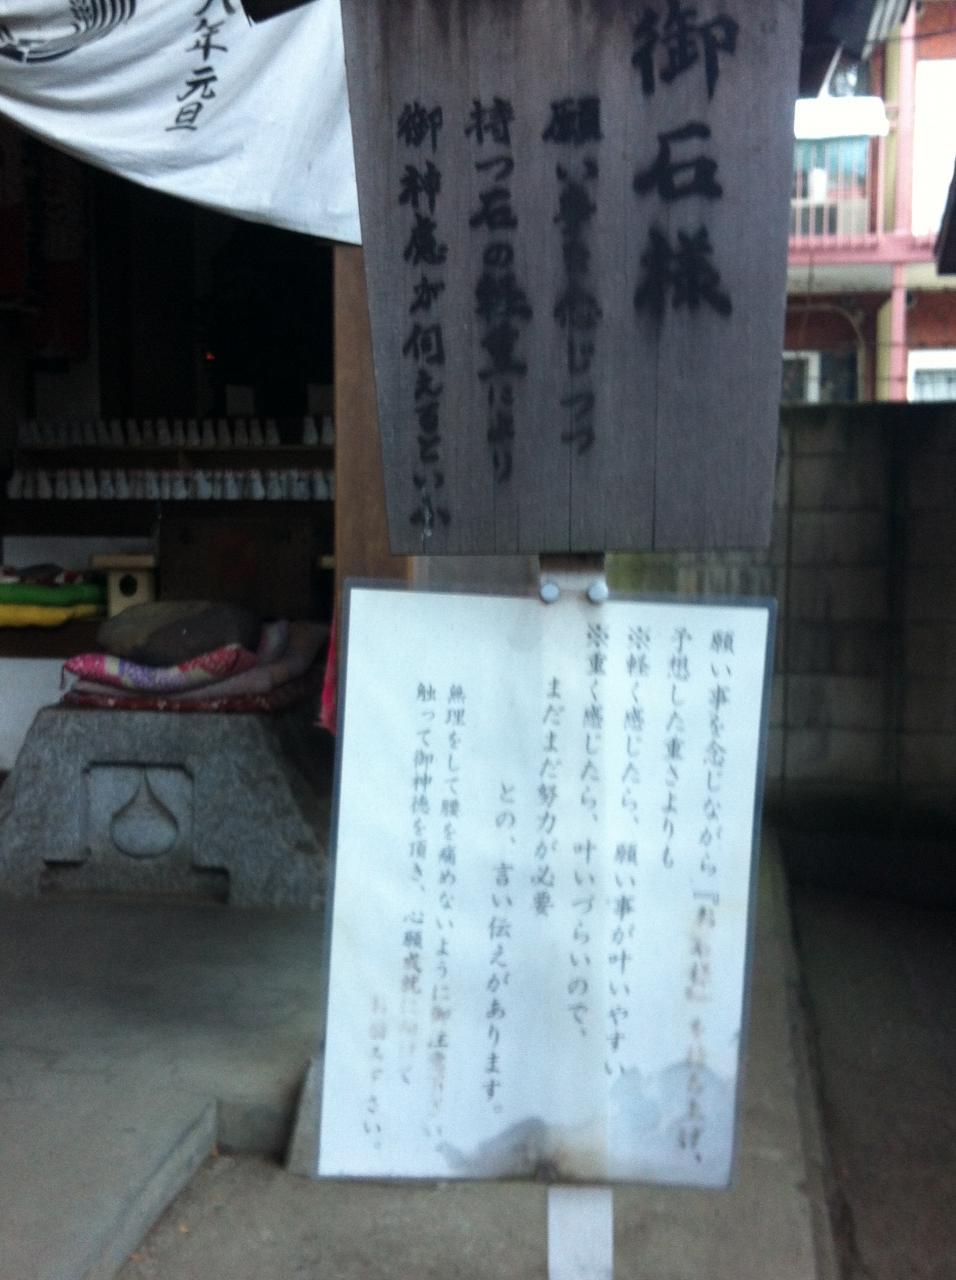 八年元旦
御石様
願い事を念じつつ
持つ石の軽重により
御神慮が伺えるといふ
願い事を念じながら『お石様』を持ち上げ、
予想した重さよりも
※軽く感じたら、願い事が叶いやすい
※重く感じたら、叶いづらいので、
まだまだ努力が必要
との、言い伝えがあります。
無理をして腰を痛めないように御注意下さい。
触って御神徳を頂き、心願成就に向けて
お励み下さい。